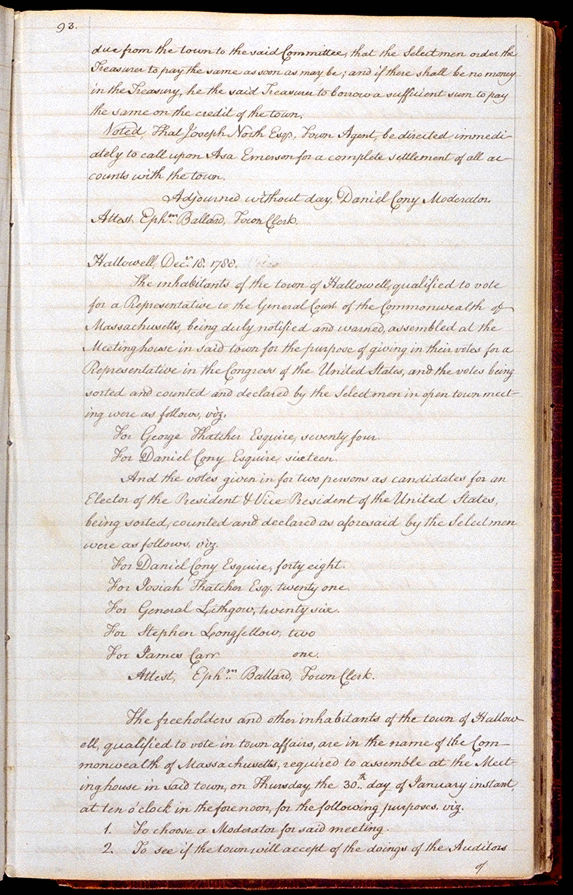 93.
due from the town to the said Committee, that the Selectmen order the
Treasurer to pay the same as soon as may be; and if there shall be no money
in the Treasury, he the said Treasurer to borrow a sufficient sum to pay
the same on the credit of the town.
Voted, That Joseph North Esqr. Town Agent, be directed immedi-
ately to call upon Asa Emerson for a complete settlement of all ac-
counts with the town.
Adjourned without day. Daniel Cony Moderator.
Attest, Ephm. Ballard, Town Clerk.
Hallowell, Decr. 18. 1788.
The inhabitants of the town of Hallowell, qualified to vote
for a Representative to the General Court of the Commonwealth of
Massachusetts, being duly notified and warned, assembled at the
Meetinghouse in said town for the purpose of giving in their votes for a
Representative in the Congress of the United States, and the votes being
sorted and counted and declared by the Selectmen in open town meet-
ing were as follows, viz.
For George Thatcher Esquire, seventy four.
For Daniel Cony Esquire, sixteen.
And the votes given in for two persons as candidates for an
Elector of the President & Vice President of the United States,
being sorted, counted and declared as aforesaid by the Selectmen
were as follows, viz.
For Daniel Cony Esquire, forty eight.
For Josiah Thatcher Esq. twenty one.
For General Lithgow, twenty six.
For Stephen Longfellow, two
For James Carr one.
Attest, Ephm. Ballard, Town Clerk.
The freeholders and other inhabitants of the town of Hallow-
ell, qualified to vote in town affairs, are in the name of the Com-
monwealth of Massachusetts, required to assemble at the Meet-
inghouse in said town, on Thursday the 30th. day of January instant,
at ten o'clock in the forenoon, for the following purposes, viz.
1. To choose a Moderator for said meeting.
2. To see if the town will accept of the doings of the Auditors
of